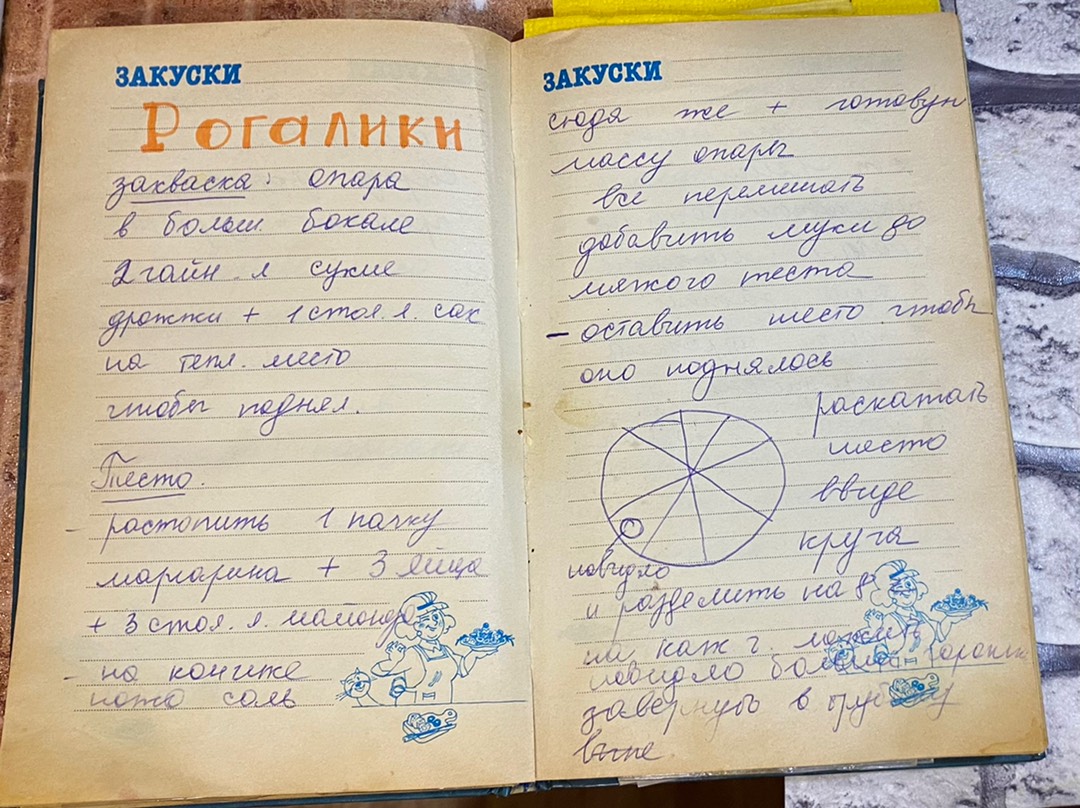 ЗАКУСКИ
Рогалики
закваска: опара
в больш. бокале
2 чайн. л сухие
дрожжи + 1 стол. л. сах
на тепл. место
чтобы поднял.
Тесто.
- растопить 1 пачку
маргарина + 3 яйца
+ 3 стол. л. майонеза
- на кончике
ножа соль
ЗАКУСКИ
сюда же + готовую
массу опары
все перемешать
добавить муки до
мягкого теста
- оставить тесто чтобы
оно поднялось
раскатать
тесто
ввиде
круга
повидло
и разделить на 8
на каж ч.
повидло
завернуть в